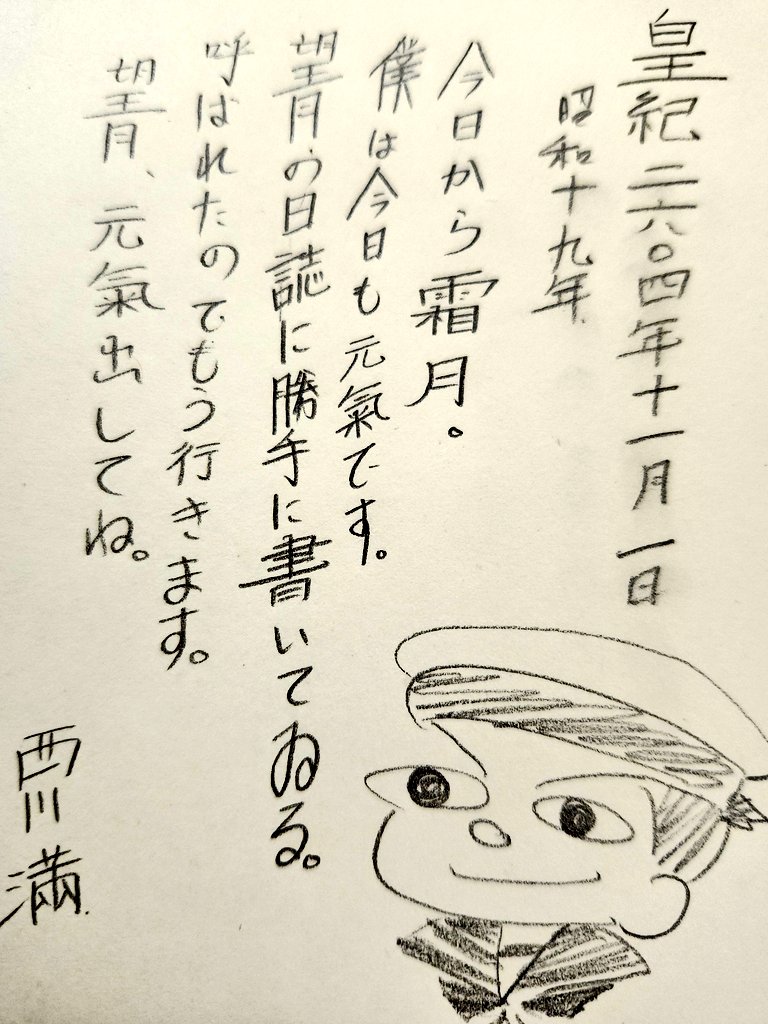 皇紀二六〇四年十一月一日
昭和十九年
今日から霜月。
僕は今日も元氣です。
望月の日誌に勝手に書いてゐる。
呼ばれたのでもう行きます。
望月、元氣出してね。
西川満